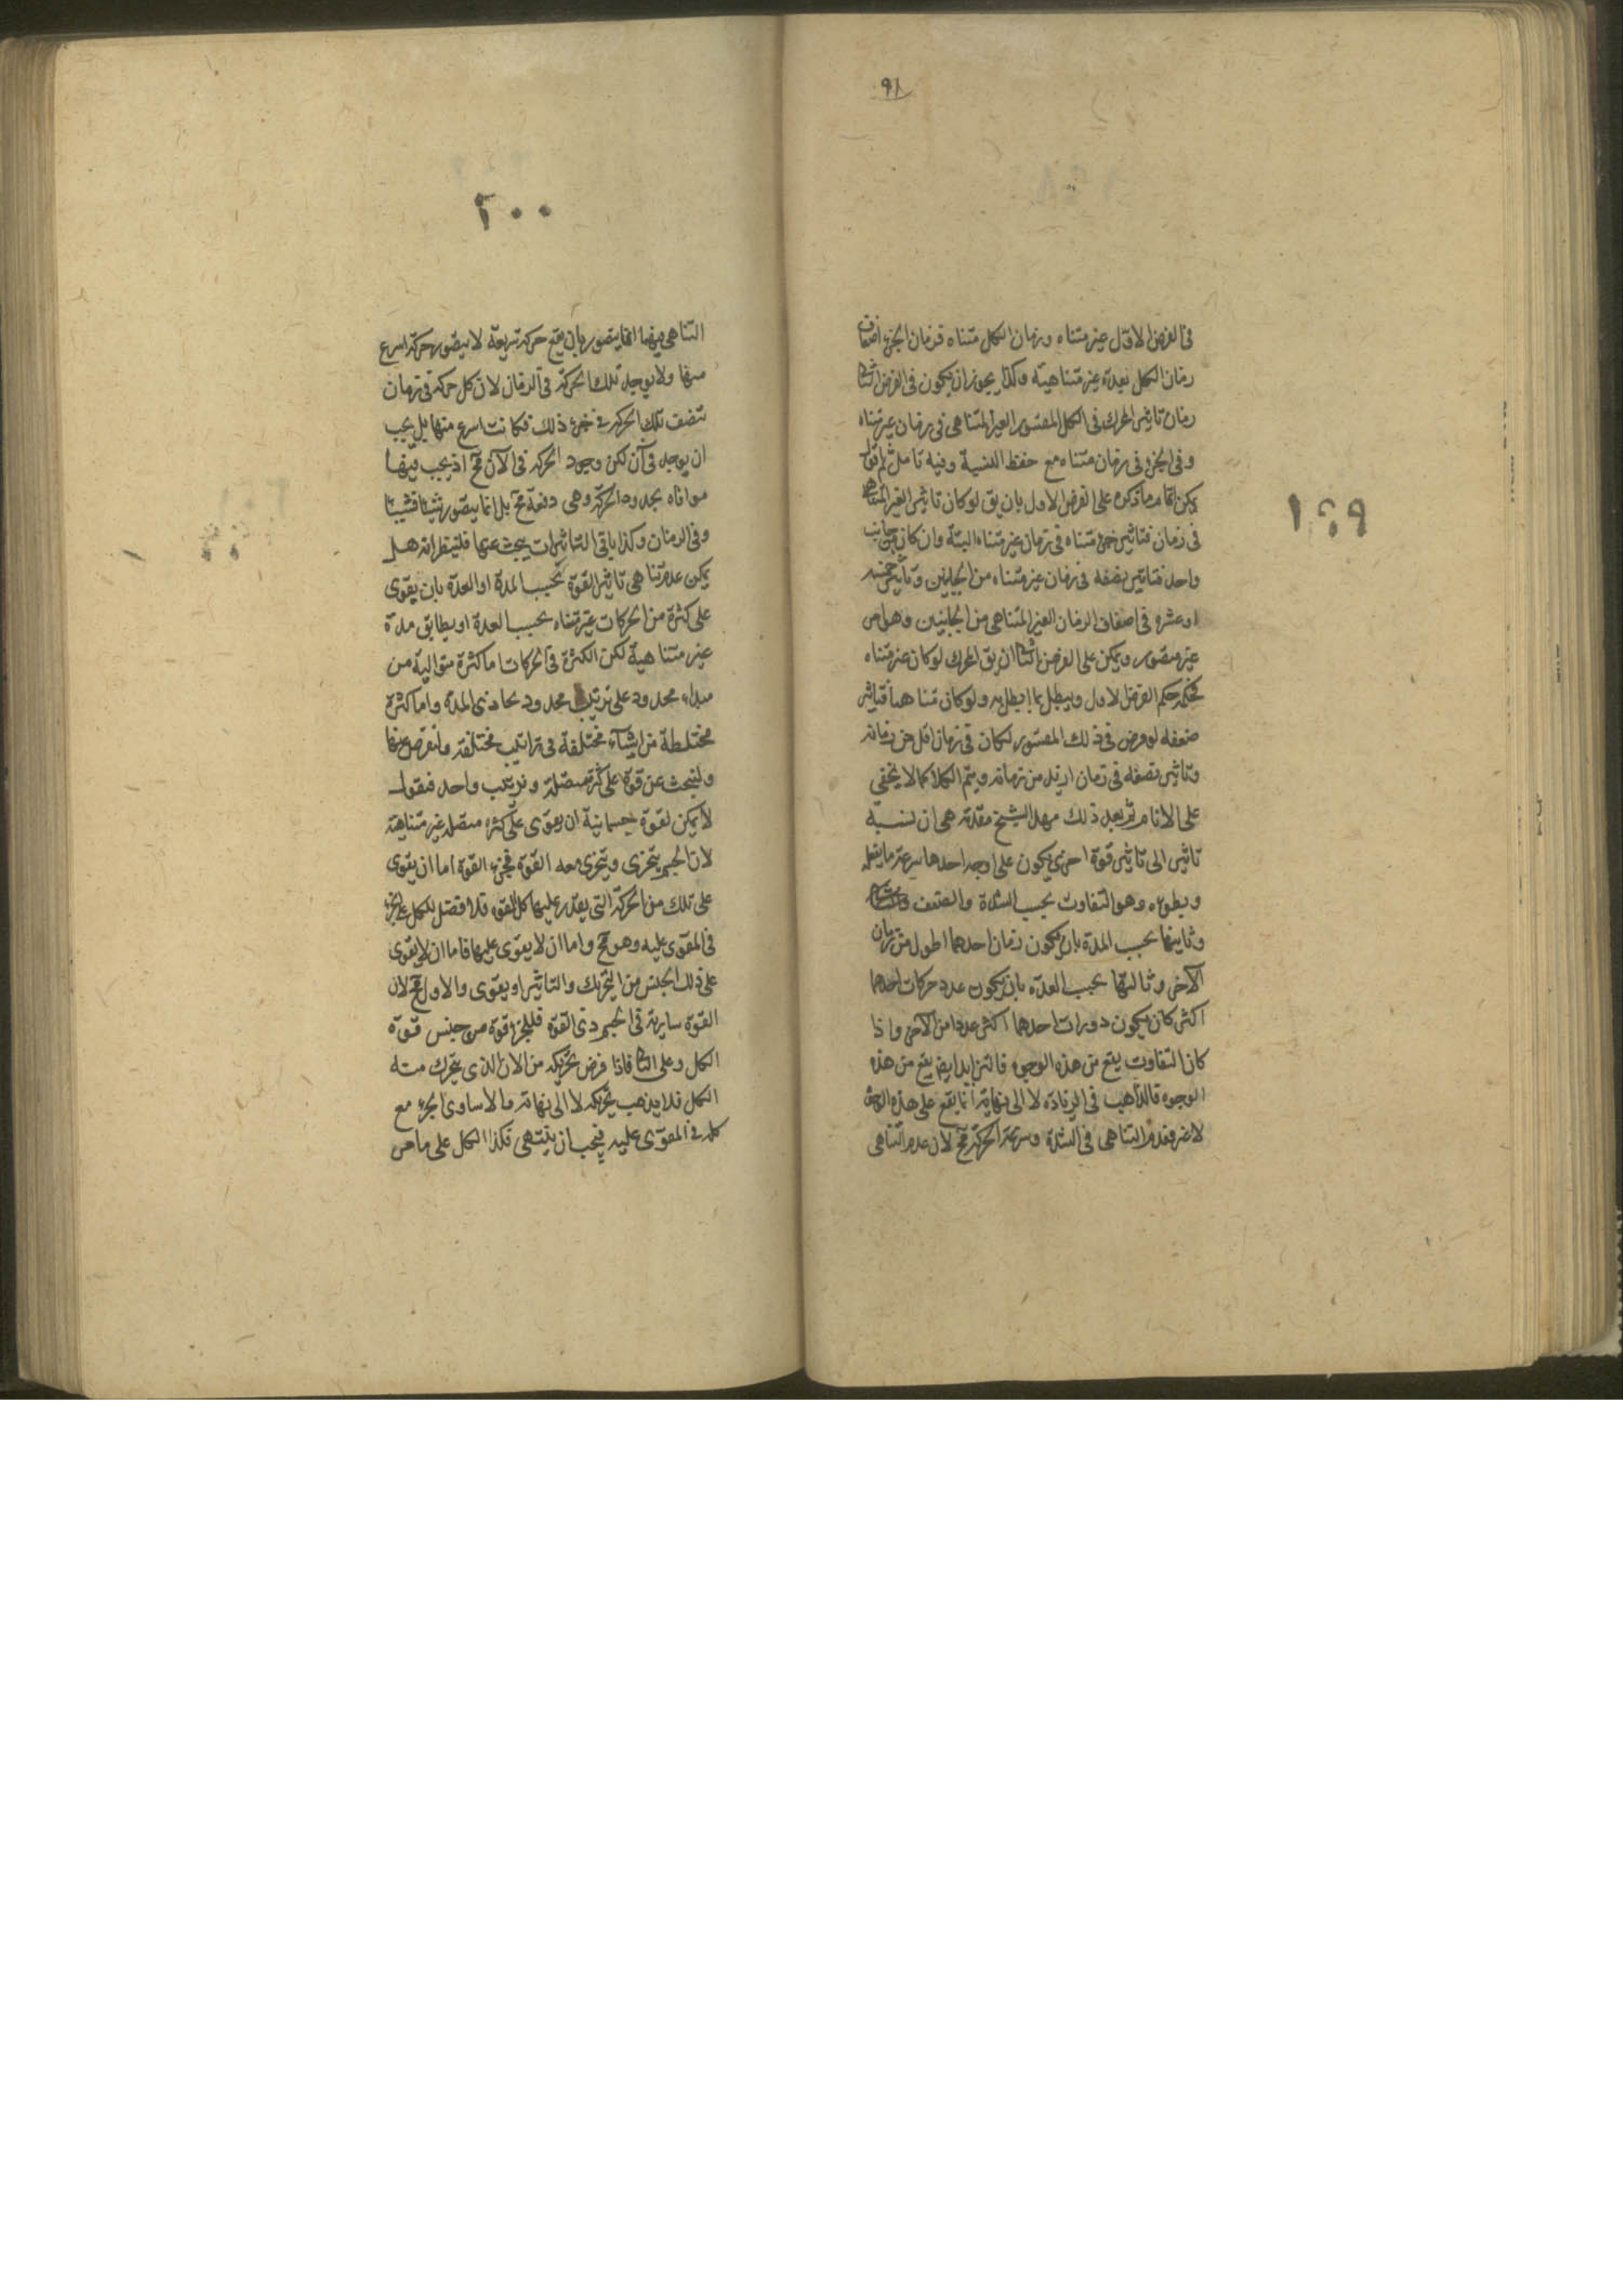 ٩٨
١٩٩
فى الفرض الاول غير متناه وزمان الكل متناه فزمان الجزء اضعاف
زمان الكل بعدة غير متناهية وكذا يجوز ان يكون فى الفرض الثانى
زمان تاثير المحرك فى الكل المقسور الغير المتناهى فى زمان غير متناه
وفى الجزء فى زمان متناه مع حفظ النسبة وفيه تامل ثم اقول
يمكن اتمام ما ذكره على الفرض الاول بان يق لو كان تاثير الغير المتناهى
فى زمان فتاثير جزء متناه فى زمان غير متناه البتة وان كان من جانب
واحد فتاثير نصفه فى زمان غير متناه من الجانبين وتاثير خمسه
او عشره فى اضعاف الزمان الغير المتناهى من الجانبين وهل هو
غير متصور ويمكن على الفرض الثانى ان يق المحرك لو كان غير متناه
فحكمه حكم الفرض الاول ويبطل بما ابطل به ولو كان متناهيا فتاثير
ضعفه لو فرض فى ذلك المقسور لكان فى زمان اقل من زمانه
وتاثير نصفه فى زمان ازيد من زمانه ويتم الكلام كما لا يخفى
على الانام ثم بعد ذلك مهد الشيخ مقدمة هى ان نسبة
تاثير الى تاثير قوة اخرى يكون على اوجه احدها سرعة ما يفعله
وبطوءه وهو التفاوت بحسب الشدة والضعف
وثانيها بحسب المدة بان يكون زمان احدهما اطول من زمان
الآخر وثالثها بحسب العدة بان يكون عدد حركات احدهما
اكثر كان يكون دورات احدهما اكثر عددا من الآخر واذا
كان التفاوت يقع من هذه الوجوه فالتزايد ايض يقع من هذه
الوجوه فالذاهب فى الزيادة لا الى نهاية انما يقع على هذه الوجوه
لا غير فعدم التناهى فى الشدة وسرعة الحركة مح لان عدم التناهى
٢٠٠
التناهى فيها انما يتصور بان يقع حركة سريعة لا يتصور حركة اسرع
منها ولا يوجد تلك الحركة فى الزمان لان كل حركة فى زمان
نصف تلك الحركة فى جزء ذلك فكانت اسرع منها بل يجب
ان يوجد فى آن لكن وجود الحركة فى الآن مح اذ يجب فيها
موافاه بحدود الحركة وهى دفعة مح بل انما يتصور شيئا فشيئا
وفى الزمان وكذا باقى التاثيرات يبحث عنها فلينظر انه هل
يمكن عدم تناهى تاثير القوة بحسب المدة او العدة بان يقوى
على كثرة من الحركات غير متناه بحسب العدة او يطابق مدة
غير متناهية لكن الكثرة فى الحركات اما كثرة متوالية من
مبداء محدود على ترتيب محدود يحاذى المدة واما كثرة
مختلطة من اشياء مختلفة فى تراتيب مختلفة ولنعرض عنها
ولنبحث عن قوة على كثرة متصلة وترتيب واحد فنقول
لا يمكن لقوة جسمانية ان يقوى على كثرة متصلة غير متناهية
لان الجسم يتجزى ويتجزى معه القوة فجزء القوة اما ان يقوى
على تلك من الحركة التى يقدر عليها كل القوة فلا فضل للكل على الجزء
فى المقوى عليه وهو مح واما ان لا يقوى عليها فاما ان لا يقوى
على ذلك الجنس من التحريك والتاثير او يقوى والاول مح لان
القوة سارية فى الجسم ذى القوة فللجزء قوة من جنس قوة
الكل وعلى الثانى فاذا فرض تحريكه من الآن الذى يتحرك منه
الكل فلا يذهب تحريكه لا الى نهاية والا لساوى الجزء مع
كله فى المقوى عليه فيجب ان ينتهى فكذا الكل على ما مر